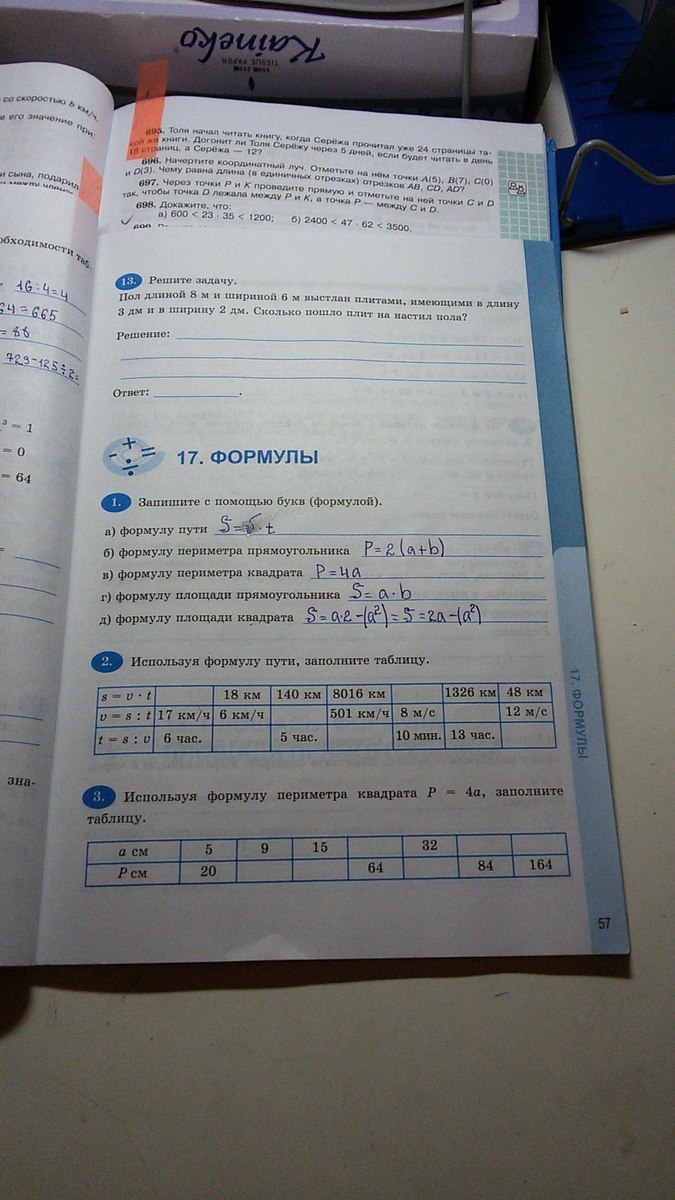 Kaineko
TISSUE PAPER
со скоростью 5 км/ч.
е его значение при:
и сына, подарил
обходимости таб.
16:4=4
64=665
=88
729-125÷2=
³ = 1
= 0
= 64
=
зна-
695. Толя начал читать книгу, когда Серёжа прочитал уже 24 страницы та-
кой же книги. Догонит ли Толя Серёжу через 5 дней, если будет читать в день
18 страниц, а Серёжа — 12?
696. Начертите координатный луч. Отметьте на нём точки A(5), B(7), C(0)
и D(3). Чему равна длина (в единичных отрезках) отрезков AB, CD, AD?
697. Через точки P и K проведите прямую и отметьте на ней точки C и D
так, чтобы точка D лежала между P и K, а точка P — между C и D.
698. Докажите, что:
а) 600 < 23 · 35 < 1200; б) 2400 < 47 · 62 < 3500.
13. Решите задачу.
Пол длиной 8 м и шириной 6 м выстлан плитами, имеющими в длину
3 дм и в ширину 2 дм. Сколько пошло плит на настил пола?
Решение:
Ответ: .
17. ФОРМУЛЫ
1. Запишите с помощью букв (формулой).
а) формулу пути S=v·t
б) формулу периметра прямоугольника P=2(a+b)
в) формулу периметра квадрата P=4a
г) формулу площади прямоугольника S=a·b
д) формулу площади квадрата S=a·2-(a²)=S=2a-(a²)
2. Используя формулу пути, заполните таблицу.
s = v · t 18 км 140 км 8016 км 1326 км 48 км
v = s : t 17 км/ч 6 км/ч 501 км/ч 8 м/с 12 м/с
t = s : v 6 час. 5 час. 10 мин. 13 час.
3. Используя формулу периметра квадрата P = 4a, заполните
таблицу.
a см 5 9 15 32
P см 20 64 84 164
17. ФОРМУЛЫ
57